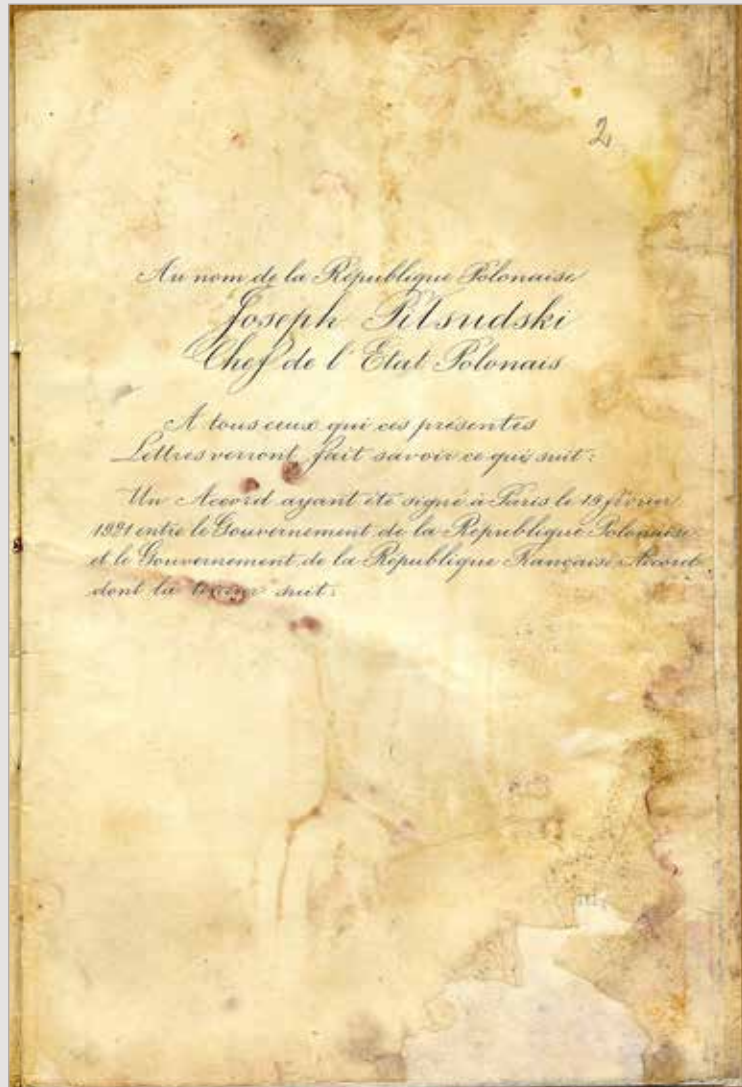 2
Au nom de la République Polonaise
Joseph Pilsudski
Chef de l'Etat Polonais
A tous ceux qui ces présentes
Lettres verront, fait savoir ce qui suit:
Un Accord ayant été signé à Paris le 19 février
1921 entre le Gouvernement de la République Polonaise
et le Gouvernement de la République Française Accord
dont la teneur suit: